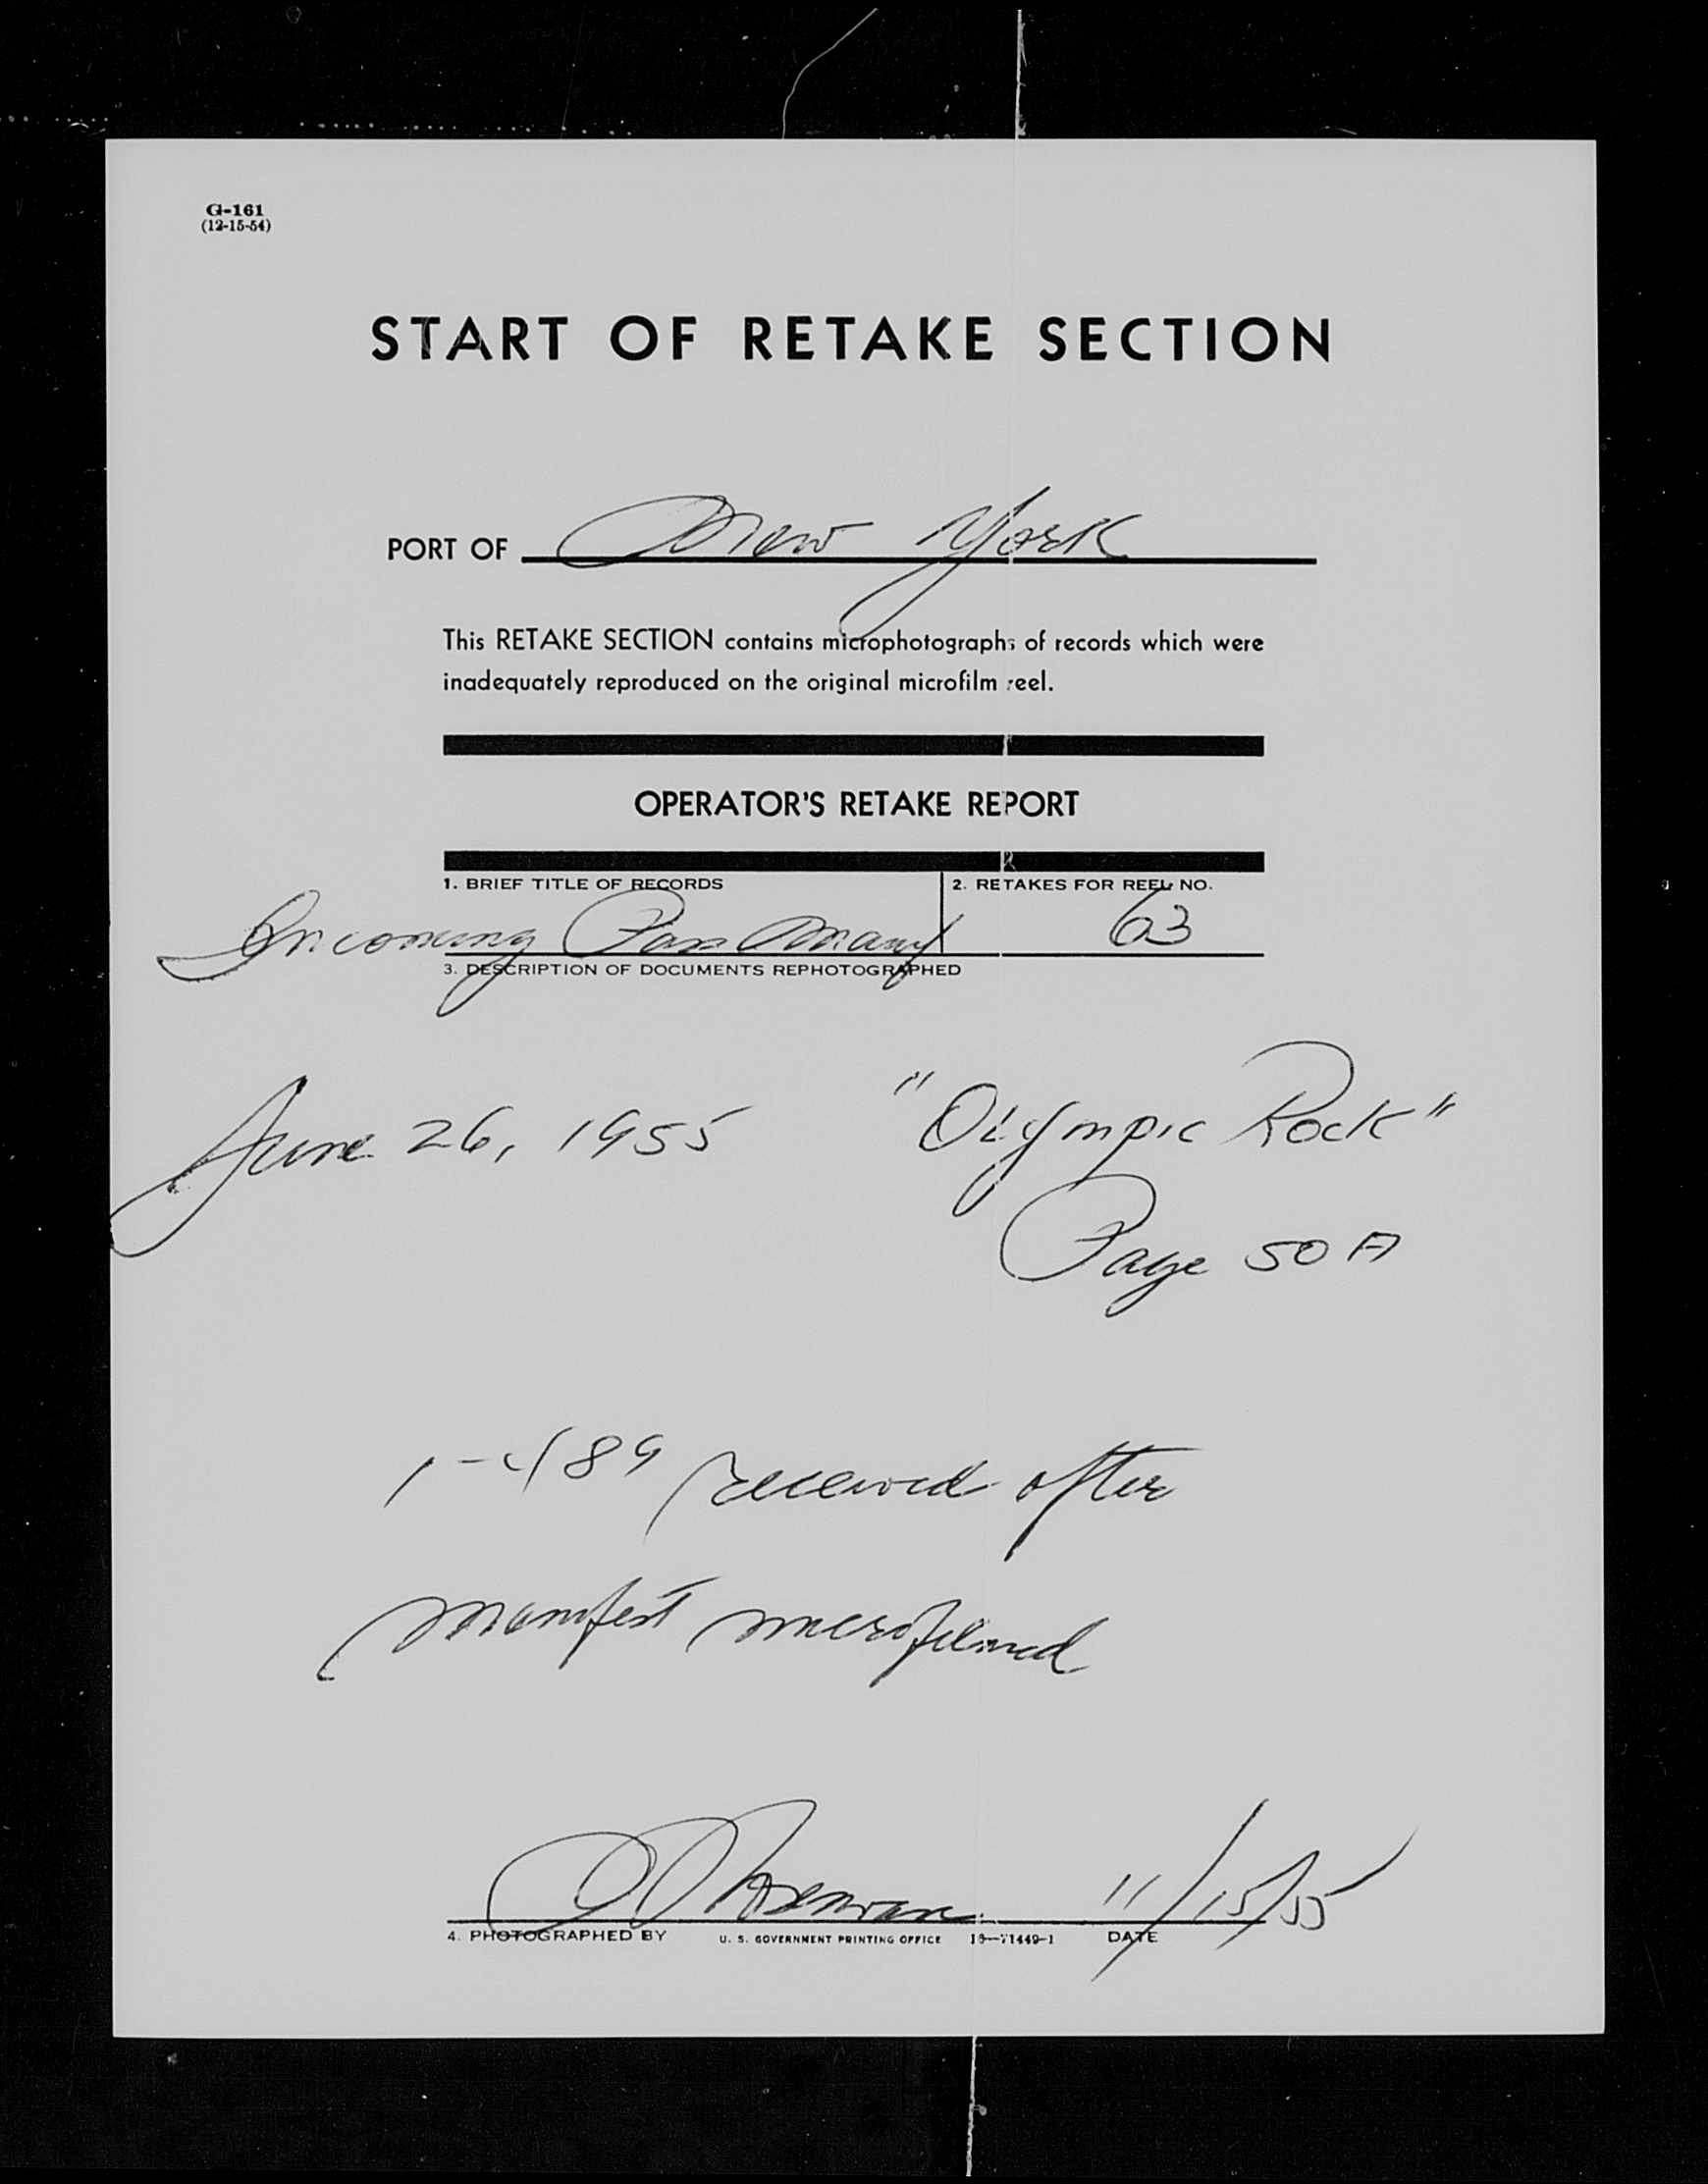 G-161
(12-15-54)
START OF RETAKE SECTION
PORT OF New York
This RETAKE SECTION contains microphotographs of records which were
inadequately reproduced on the original microfilm reel.
OPERATOR'S RETAKE REPORT
1. BRIEF TITLE OF RECORDS 2. RETAKES FOR REEL NO.
Incoming Pass Manf 63
3. DESCRIPTION OF DOCUMENTS REPHOTOGRAPHED
June 26, 1955 "Olympic Rock"
Page 50A
1-489 received after
manifest microfilmed
11/15/55
4. PHOTOGRAPHED BY U. S. GOVERNMENT PRINTING OFFICE 16—71449-1 DATE